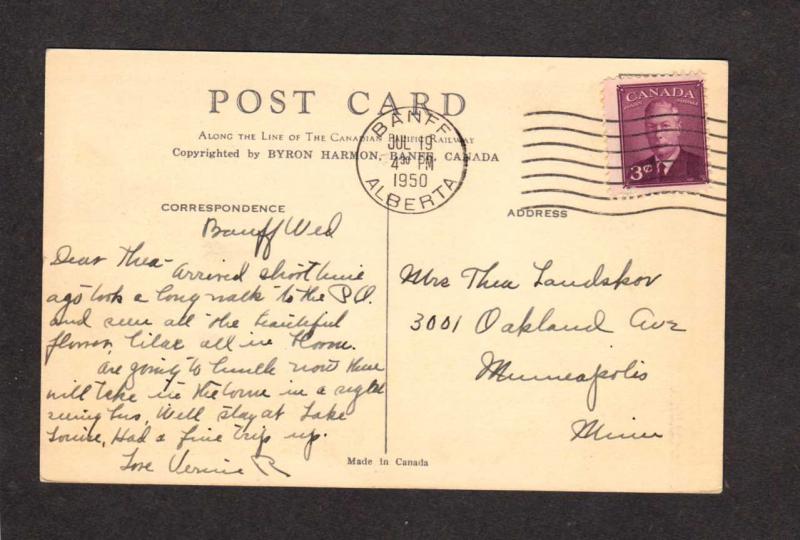 POST CARD
ALONG THE LINE OF THE CANADIAN PACIFIC RAILWAY
Copyrighted by BYRON HARMON, BANFF, CANADA
BANFF
JUL 19
4 30 PM
1950
ALBERTA
CANADA
3¢
CORRESPONDENCE
ADDRESS
Banff Wed
Dear Thea - arrived short time
ago took a long walk to the P.O.
and seen all the beautiful
flowers, lilac all in bloom.
are going to lunch now then
will take in the town in a sight
seeing bus, Will stay at Lake
Louise, Had a fine trip up.
Love
Mrs Thea Landskov
3001 Oakland Ave
Minneapolis
Minn
Made in Canada